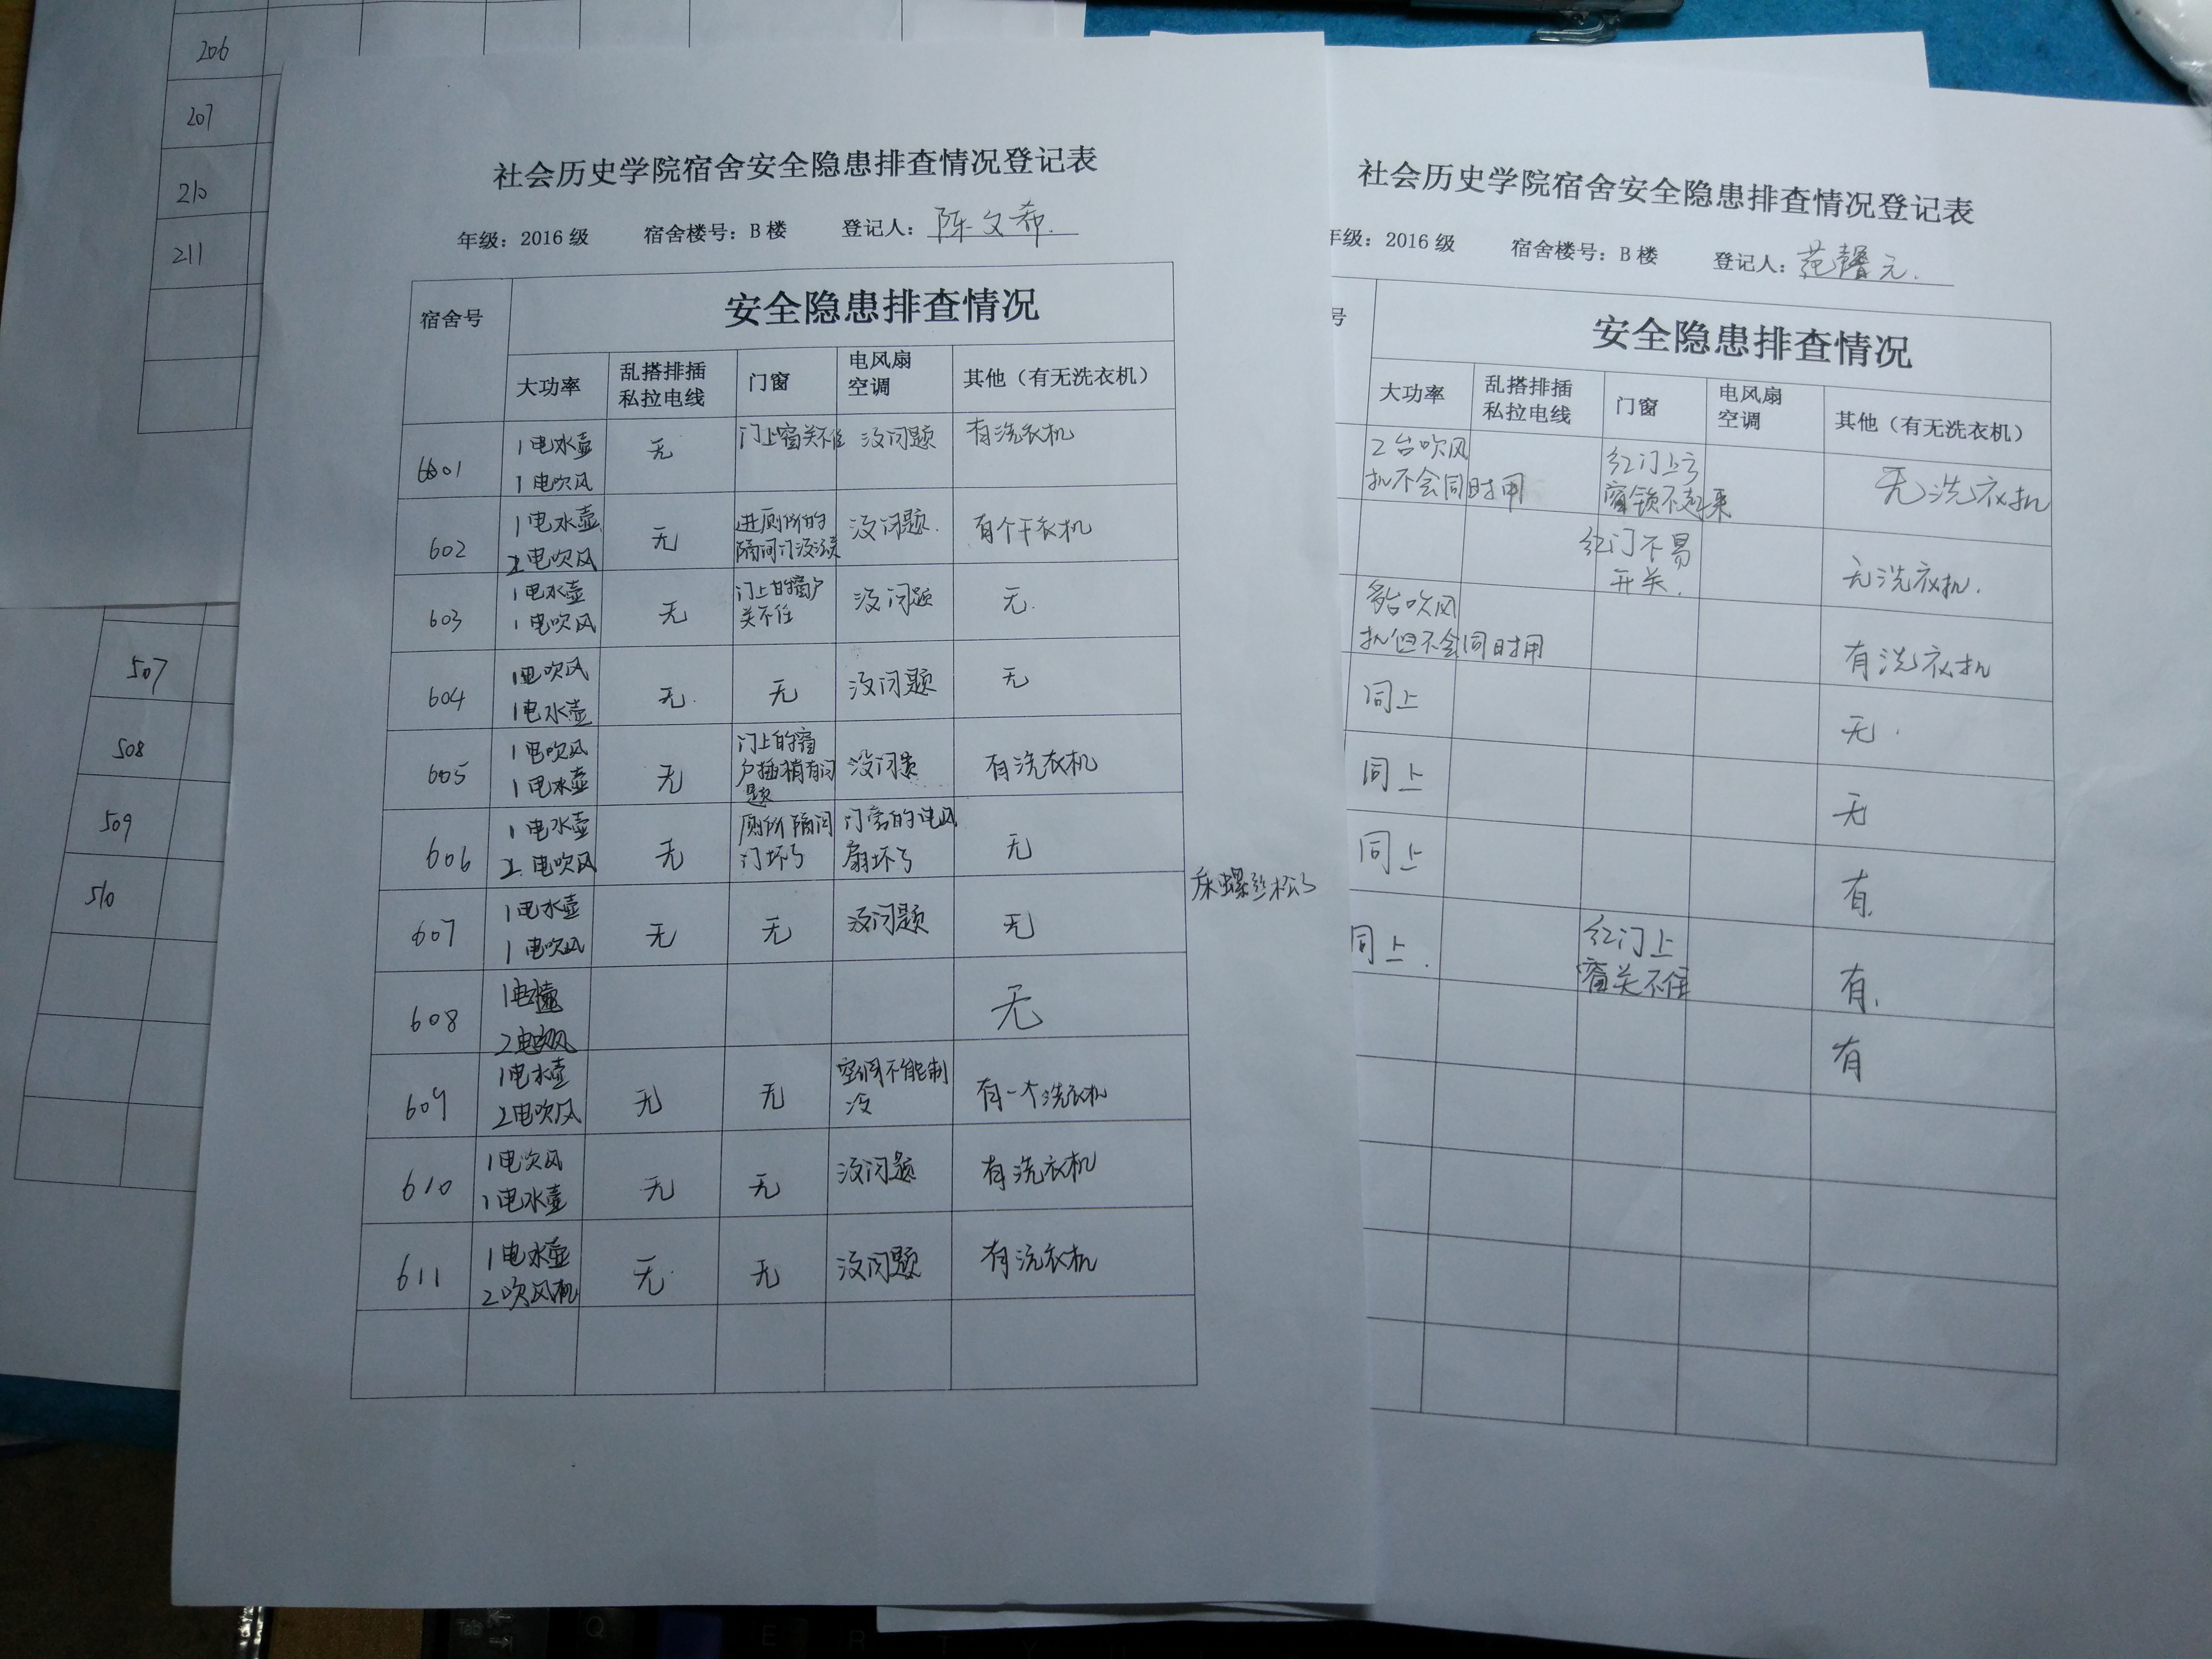 206
207
210
211
507
508
509
510
社会历史学院宿舍安全隐患排查情况登记表
年级：2016 级 宿舍楼号：B 楼 登记人：陈文希.
宿舍号 安全隐患排查情况
大功率 乱搭排插 私拉电线 门窗 电风扇 空调 其他（有无洗衣机）
6601 1电水壶 无 门上窗关不住 没问题 有洗衣机
1电吹风
602 1电水壶 无 进厕所的 没问题. 有个干衣机
2电吹风 隔间门没法关
603 1电水壶 无 门上的窗户 没问题 无.
1电吹风 关不住
604 1电吹风 无. 无 没问题 无
1电水壶
605 1电吹风 无 门上的窗 没问题 有洗衣机
1电水壶 户插稍有问
题
606 1电水壶 无 厕所隔间 门旁的电风 无
2.电吹风 门坏了 扇坏了
607 1电水壶 无 无 没问题 无
1电吹风
床螺丝松了
608 1电水壶 无
2电吹风
609 1电水壶 无 无 空调不能制 有一个洗衣机
2电吹风 冷
610 1电吹风 无 无 没问题 有洗衣机
1电水壶
611 1电水壶 无. 无 没问题 有洗衣机
2吹风机
社会历史学院宿舍安全隐患排查情况登记表
年级：2016 级 宿舍楼号：B 楼 登记人：范馨元.
号 安全隐患排查情况
大功率 乱搭排插 私拉电线 门窗 电风扇 空调 其他（有无洗衣机）
2台吹风 红门上方 无洗衣机
机不会同时用 窗锁不起来
红门不易 无洗衣机.
开关.
多台吹风 有洗衣机
机但不会同时用
同上 无.
同上 无
同上 有.
同上. 红门上 有.
窗关不住
有
Tab
Q
E
R
T
Y